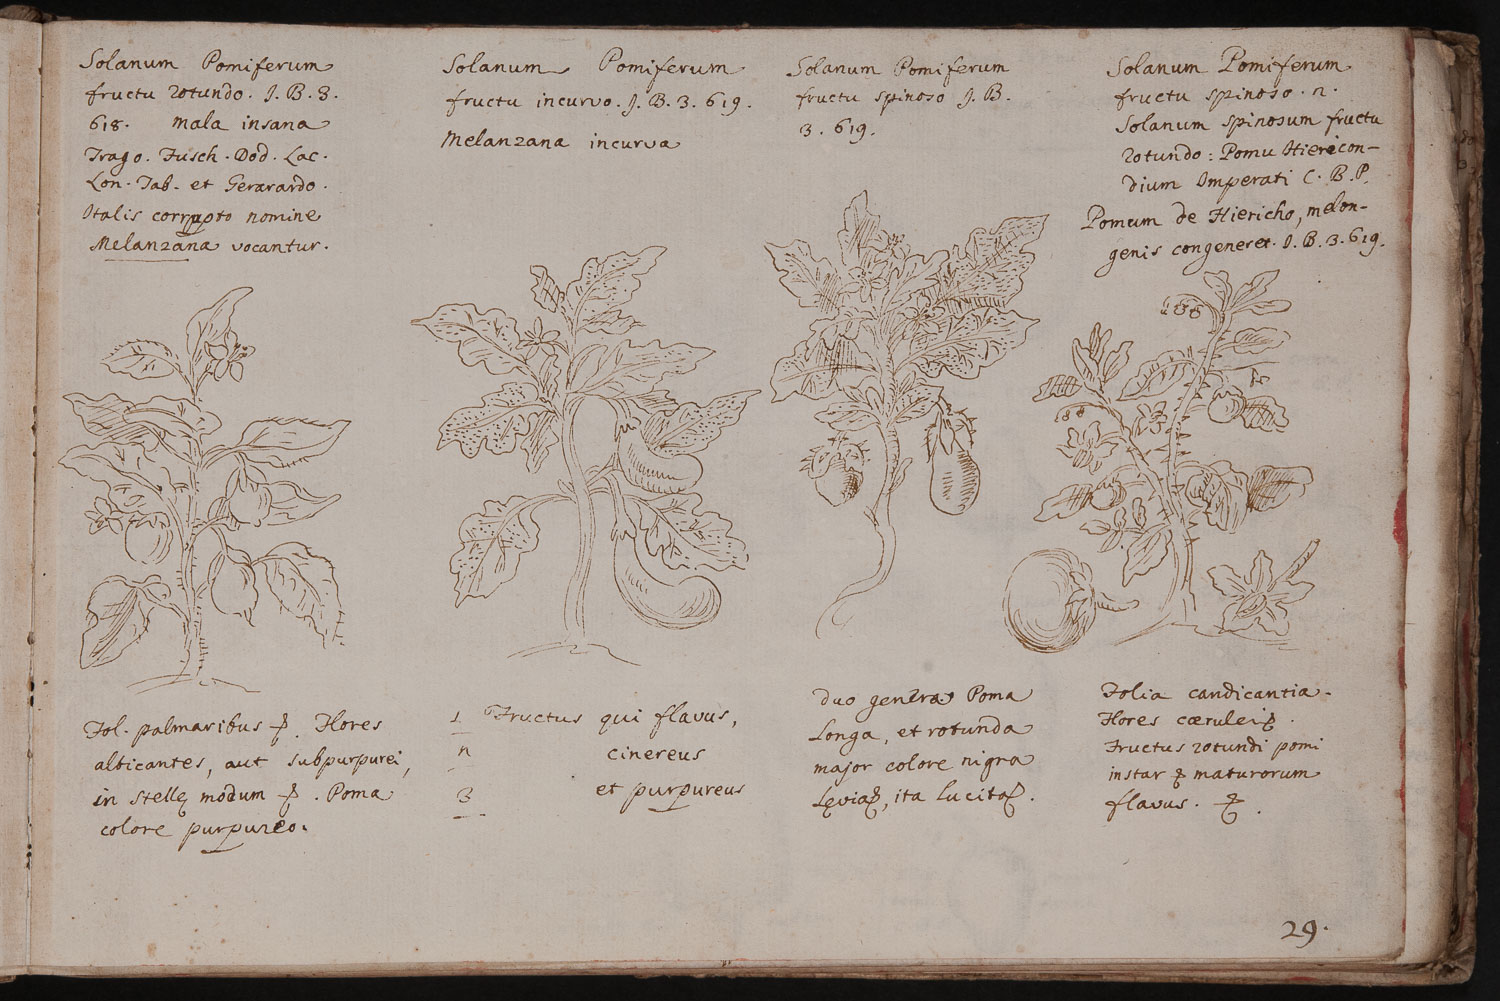 Solanum Pomiferum
fructu rotundo. J. B. 3.
618. mala insana
Trago. Fusch. Dod. Lac.
Lon. Tab. et Gerarardo.
Italis corrupto nomine
Melanzana vocantur.
Solanum Pomiferum
fructu incurvo. J. B. 3. 619.
Melanzana incurva
Solanum Pomiferum
fructu spinoso J. B.
3. 619.
Solanum Pomiferum
fructu spinoso. n.
Solanum spinosum fructu
rotundo: Pomu Hierecon-
dium Imperati C. B. P.
Pomum de Hiericho, melon-
genis congeneret. J. B. 3. 619.
Fol. palmaribus. Flores
albicantes, aut subpurpurei,
in stellę modum. Poma
colore purpureo.
1 Fructus qui flavus,
n cinereus
3 et purpureus
duo genera Poma
Longa, et rotunda
major colore nigra
Lęvia, ita lucita.
Folia candicantia.
Flores cærulei.
Fructus rotundi pomi
instar maturorum
flavus.
29.